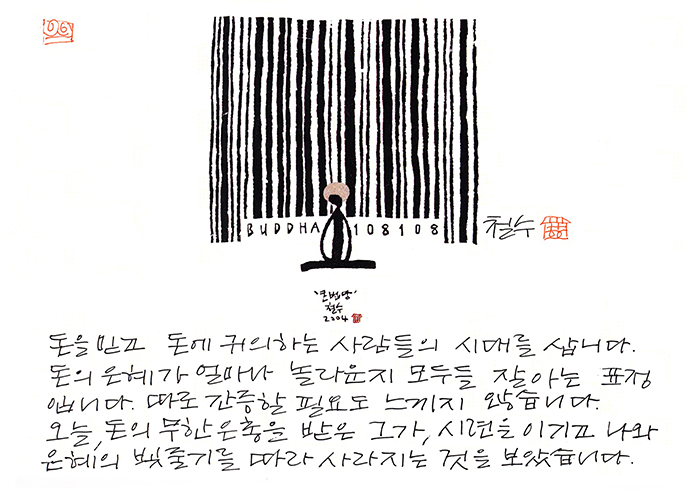 06
BUDDHA 108108
철수
'큰법당'
철수
2004
돈을 믿고 돈에 귀의하는 사람들의 시대를 삽니다.
돈의 은혜가 얼마나 놀라운지 모두들 잘아는 표정
입니다. 따로 간증할 필요도 느끼지 않습니다.
오늘, 돈의 무한은총을 받은 그가, 시련을 이기고 나와
은혜의 빛줄기를 따라 사라지는 것을 보았습니다.